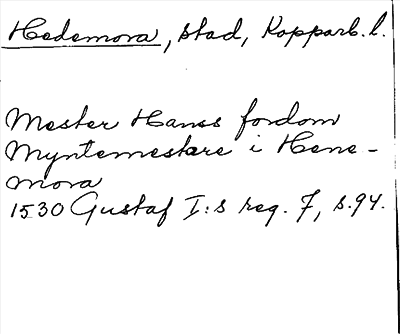 Hedemora, stad, Kopparb. l.
Mester Hanss fordom
Myntemestare i Hene-
mora
1530 Gustaf I:s reg. 7, s. 94.